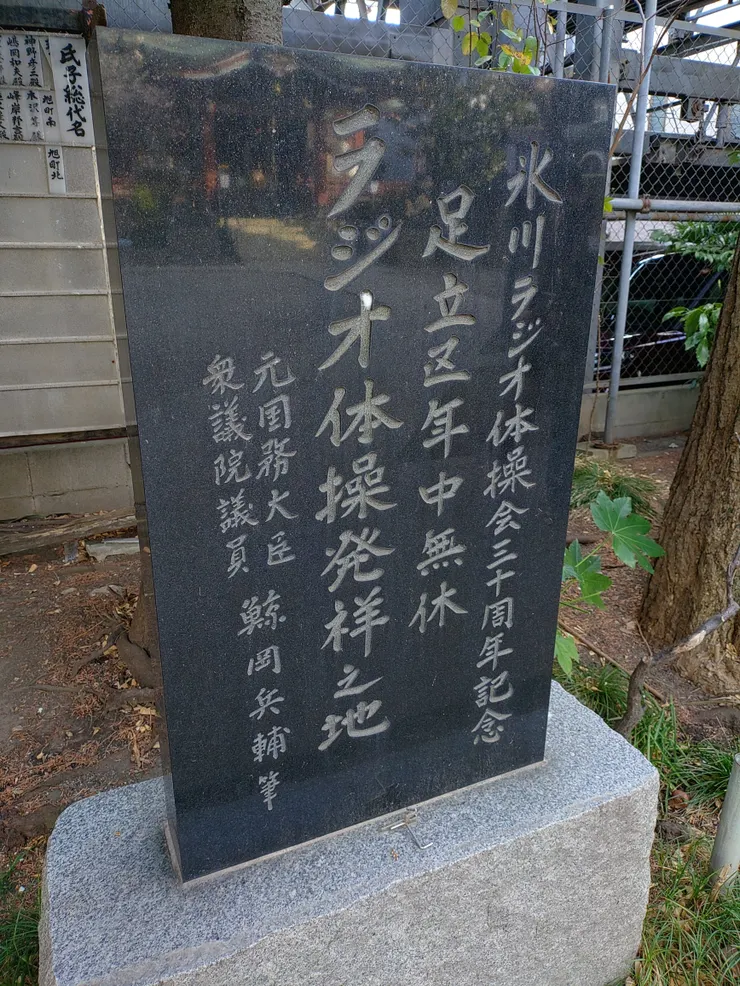 氷川ラジオ体操会三十周年記念
足立区年中無休
ラジオ体操発祥之地
元国務大臣
衆議院議員
鯨岡兵輔筆
氏子総代名
旭町南
旭町北